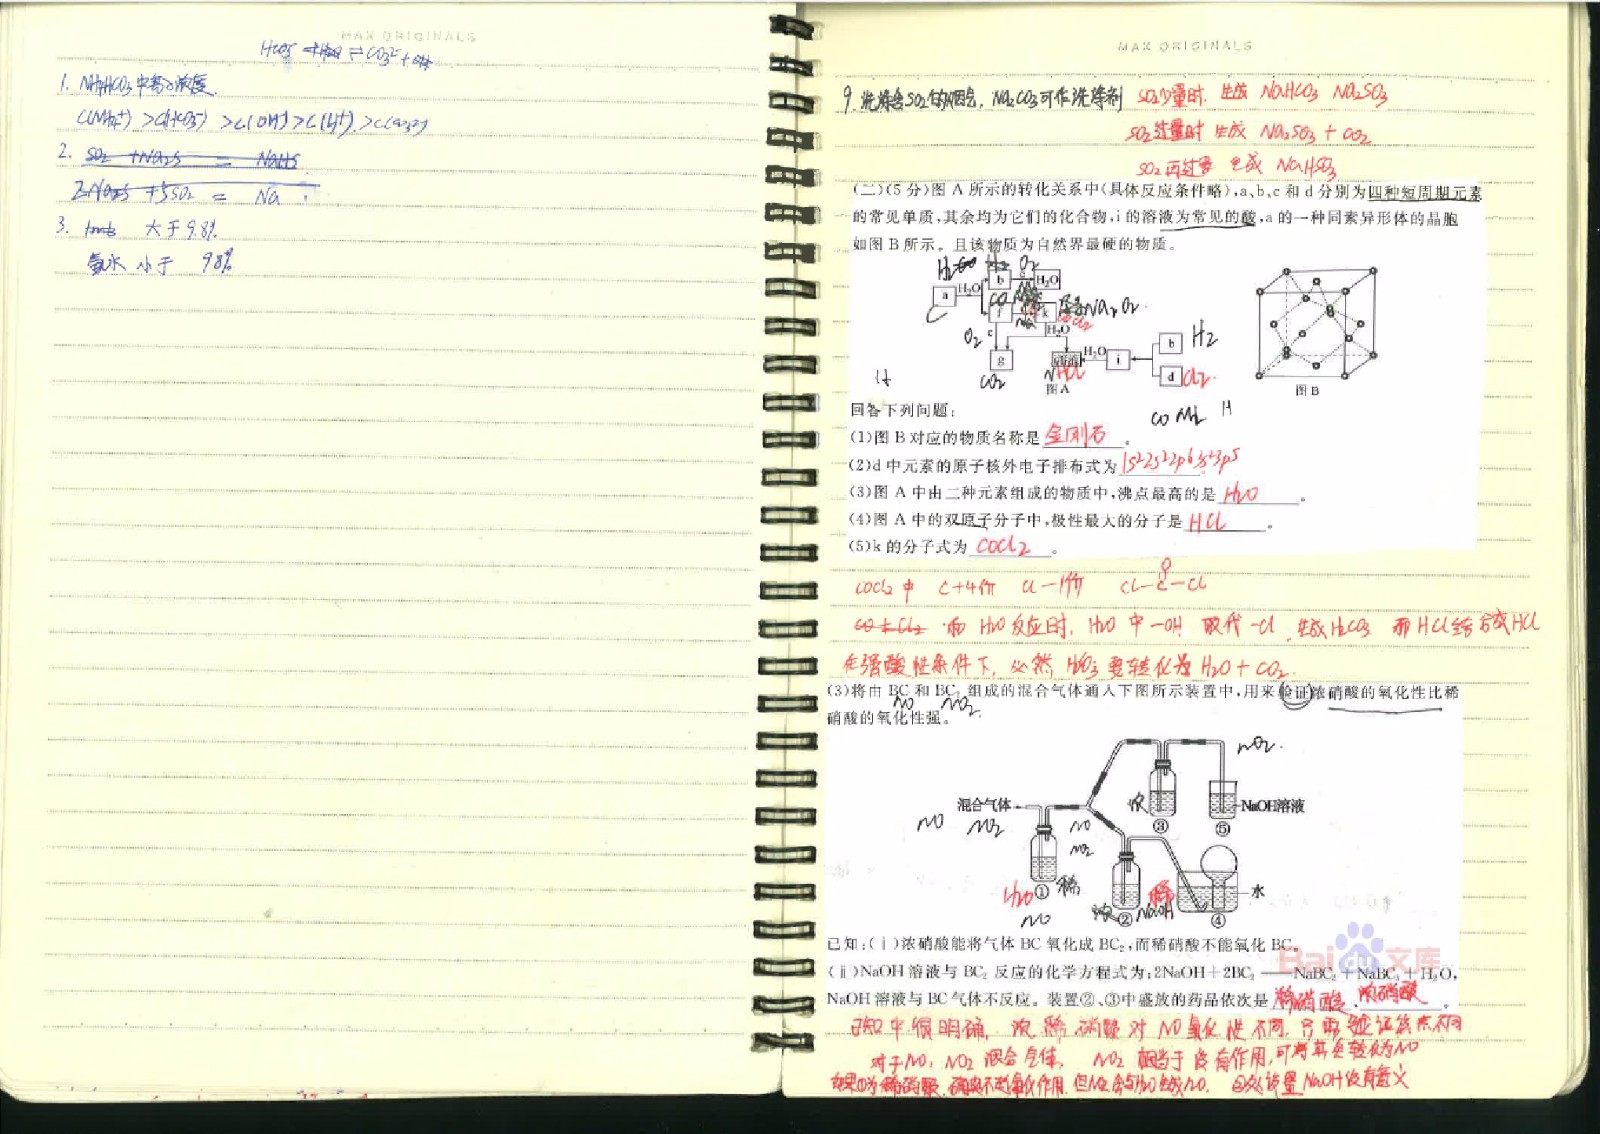 MAX ORIGINALS
HCO3⁻ ⇌ CO3²⁻ +
1. NH4HCO3中离子浓度
C(NH4⁺) > C(HCO3⁻) > C(OH⁻) > C(H⁺) > C(CO3²⁻)
2. SO2 + Na2S = NaHS
2Na2S + 5SO2 = Na
3. 大于9.8%
氨水 小于 9.8%
MAX ORIGINALS
9. 洗涤含SO2的烟气, Na2CO3可作洗涤剂 SO2少量时, 生成 NaHCO3 Na2SO3
SO2过量时 生成 Na2SO3 + CO2
SO2再过量 生成 NaHSO3
(二)(5 分)图 A 所示的转化关系中(具体反应条件略),a、b、c 和 d 分别为四种短周期元素
的常见单质,其余均为它们的化合物,i 的溶液为常见的酸,a 的一种同素异形体的晶胞
如图 B 所示。且该物质为自然界最硬的物质。
H2 O2
b H2O
a H2O
C CO Na2O2
f k COCl2
O2 c H2O
g 溶液 H2O i b H2
CO2 HCl d Cl2
图A 图B
CO H
回答下列问题:
(1)图 B 对应的物质名称是 金刚石 。
(2)d 中元素的原子核外电子排布式为 1s²2s²2p⁶3s²3p⁵
(3)图 A 中由二种元素组成的物质中,沸点最高的是 H2O 。
(4)图 A 中的双原子分子中,极性最大的分子是 HCl 。
(5)k 的分子式为 COCl2 。
COCl2 中 C+4价 Cl-1价 Cl-C-Cl
O
CO+Cl2 和 H2O反应时, H2O 中 -OH 取代 -Cl, 生成 H2CO3 而 H Cl结合成HCl
在强酸性条件下, 必然 H2CO3 要转化为 H2O + CO2.
(3)将由 BC 和 BC2 组成的混合气体通入下图所示装置中,用来验证浓硝酸的氧化性比稀
NO NO2
硝酸的氧化性强。
NO2
混合气体 浓 NaOH溶液
NO NO2 NO NO2 ③ ⑤
H2O ① 稀 稀 水
NO 浓 ② NaOH ④
已知:(ⅰ)浓硝酸能将气体 BC 氧化成 BC2,而稀硝酸不能氧化 BC。
(ⅱ)NaOH 溶液与 BC2 反应的化学方程式为:2NaOH+2BC2——NaBC2+NaBC3+H2O,
NaOH 溶液与 BC 气体不反应。装置②、③中盛放的药品依次是 稀硝酸 、浓硝酸 。
Baidu文库
已知中很明确, 浓、稀硝酸对 NO 氧化性不同, 只需验证
对于NO, NO2 混合气体, NO2 相当于没有作用, 可将其全转化为NO
如果①为稀硝酸, 但NO2会与H2O生成NO. 设置NaOH没有意义